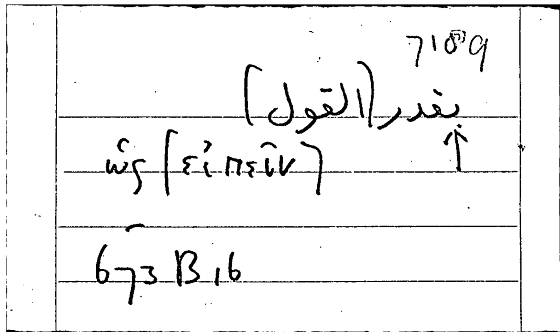 7189
بقدر (القول)
↑
ὡς [εἰπεῖν]
673 B 16